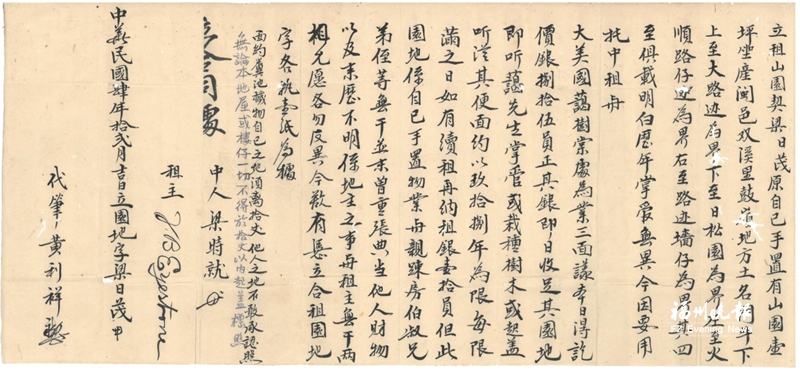 立租山園契梁日茂原自己手置有山園壹
坪坐產閩邑双溪里鼓嶺地方土名年下
上至大路边為界下至日松園為界左至火
順路仔边為界右至路边墻仔為界四
至俱載明白歷年掌爱無異今因要用
托中租与
大美國藹樹棠處為業三面議本日得訖
價銀捌拾伍員正其銀即日收足其園地
即听藹先生掌管或栽種樹木或起盖
听從其便面約以玖拾捌年為限每限
滿之日如有續租再納租銀壹拾員但此
園地係自己手置物業与親踈房伯叔兄
弟侄等無干並未曾重張典當他人財物
以及来歷不明係地主之事与租主無干两
相允愿各勿反異今欲有憑立合租園地
字各執壹紙為據
面約粪池穢物自己之地須离拾丈他人之地不敢承認照
無論本地屋或樓仔一切不得於拾丈以内起盖標照
中人 梁時就
租主 J B Eyestone
中華民國肆年拾弍月吉日立園地字梁日茂
代筆 黄利祥
福州晚报
FZ Evening News